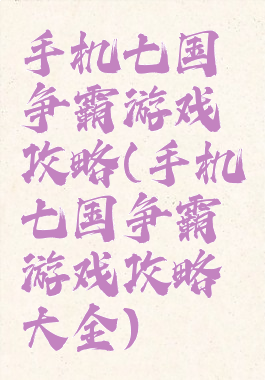 手机七国
争霸游戏
攻略(手机
七国争霸
游戏攻略
大全)